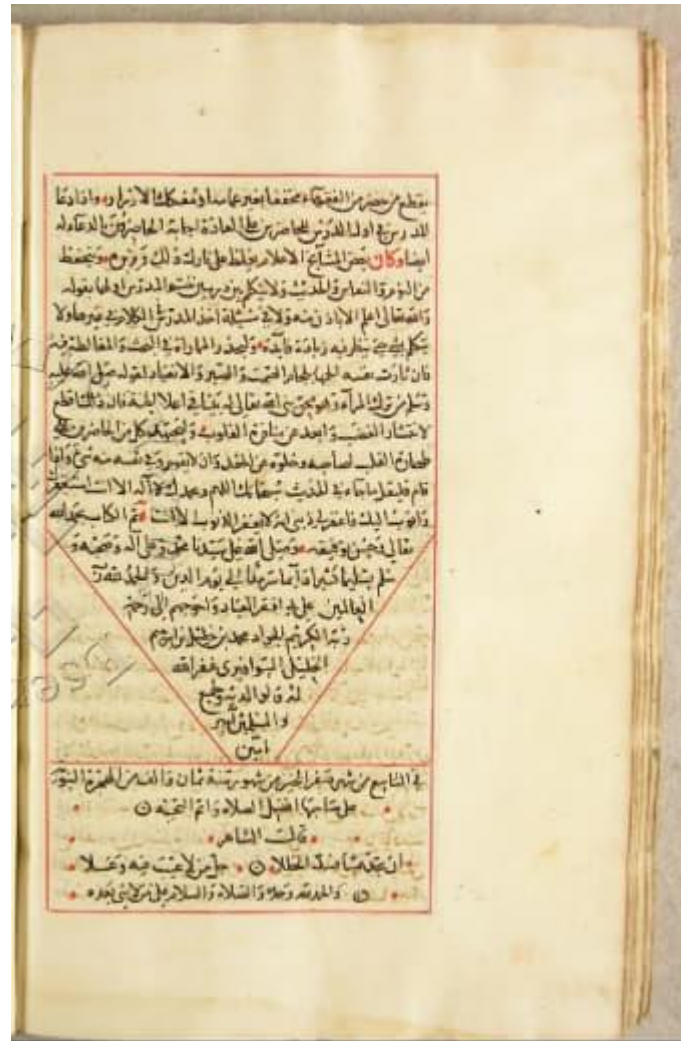 يقطع من حضر من الفقهاء مخففا بغير عمامة او مفكك الازرار واذا دعا
المدرس في اول الدرس للحاضرين على العادة اجابه الحاضرون بالدعاء له
ايضا وكان بعض المشايخ الاعلام يغلظ على تارك ذلك ويتحفظ
من النوم والنعاس والحديث ولا يتكلم بين
والله تعالى اعلم الا باذن منه ولا في مسئلة اخذ المدرس الكلام في غيرها ولا
يتكلم بشي حتى ينظر فيه زيادة فايدة وليحذر المماراة في البحث والمغالطة فيه
فان ثارت نفسه الجمها بلجام الصمت والصبر والانقياد لقوله صلى الله عليه
وسلم من ترك المرآء وهو محق بنى الله تعالى له بيتا في اعلا الجنة فان ذلك اقطع
لانتشار الغضب وابعد عن منافرة القلوب وليجتهد كل من الحاضرين على
طهارة القلب لصاحبه وخلوه عن الحقد وان لا يقوم وفي نفسه منه شي واذا
قام فليقل ما جاء في الحديث سبحانك اللهم وبحمدك لا اله الا انت استغفرك
واتوب اليك فاغفر لي ذنبي انه لا يغفر الذنوب الا انت تم الكتاب بحمد الله
تعالى وتوفيقه وصلى الله على سيدنا محمد وعلى آله وصحبه و
سلم تسليما كثيرا دآئما الى يوم الدين والحمد لله رب
العالمين على يد افقر العباد واحوجهم الى رحمة
ربه الكريم الجواد محمد بن
غفر الله
له ولوالديه ولجميع
والمسلمين آمين
امين
في التاسع من شهر صفر الخير من شهور سنة ثمان والف من الهجرة النبوية
على صاحبها افضل الصلاة واتم التحية
قال الشاعر
ان تجد عيبا فسد الخللا جل من لا عيب فيه وعلا
والحمد لله وحده والصلاة والسلام على من لا نبي بعده